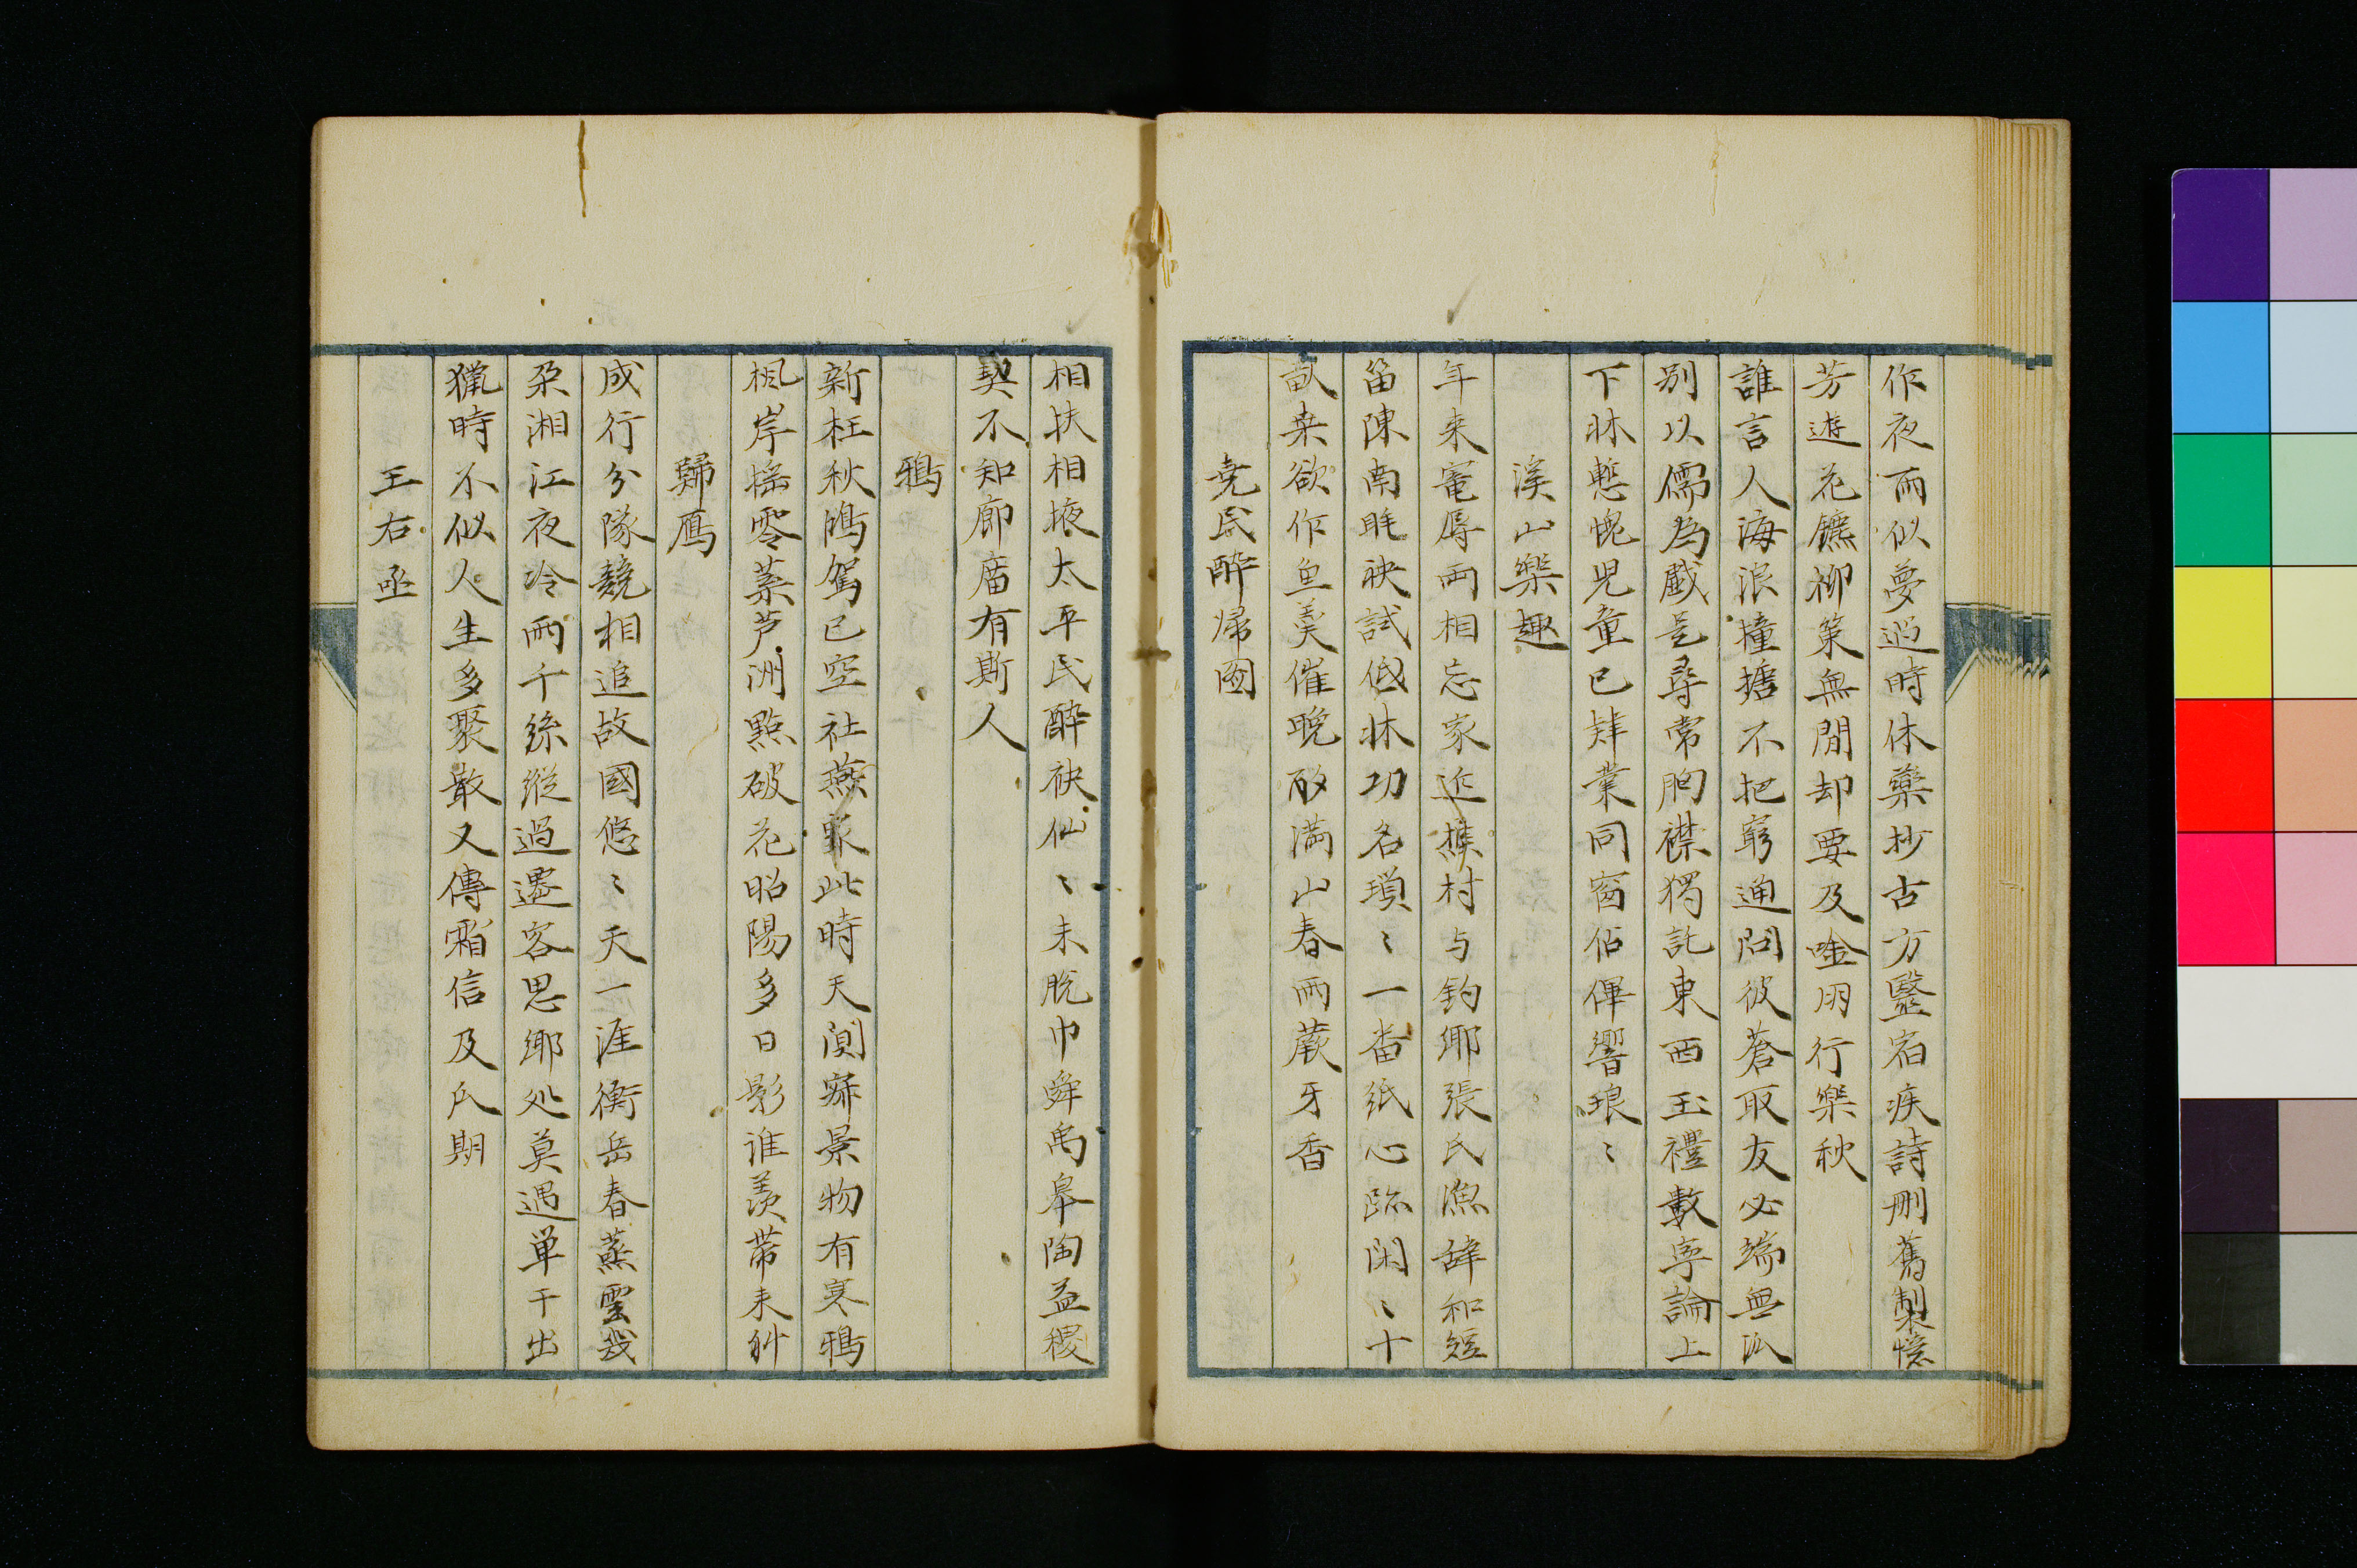 作夜雨似夢過時休藥抄古方毉宿疾詩刪舊製憶
芳遊花鑣柳策無閒却要及唫朋行樂秋
誰言人海浪撞搪不把窮通問彼蒼取友必端無汎
別以儒為戲是尋常胸襟獨託東西玉禮數寧論上
下牀慙愧児童已肄業同窗佔俾響琅〻
溪山樂趣
年来寵辱両相忘家近樵村与釣鄉張氏漁辞和短
笛陳南眊袂試低牀功名瑣〻一畨紙心跡閑〻十
畝桒欲作魚羮催晚酌満山春雨蕨牙香
堯民醉帰圖
相扶相掖太平民醉袂仙〻未脫巾舜禹皋陶益稷
契不知廊庿有斯人
鴉
新枉秋鴻駕已空社燕家此時天闃寂景物有寒鴉
楓岸揺零葉芦洲點破花昭陽多日影誰羨帯来斜
歸鴈
成行分隊競相追故國悠〻天一涯衡岳春蒸雲幾
朶湘江夜冷雨千絲縱過遷客思鄉処莫遇単于出
獵時不似人生多聚散又傳霜信及瓜期
王右丞